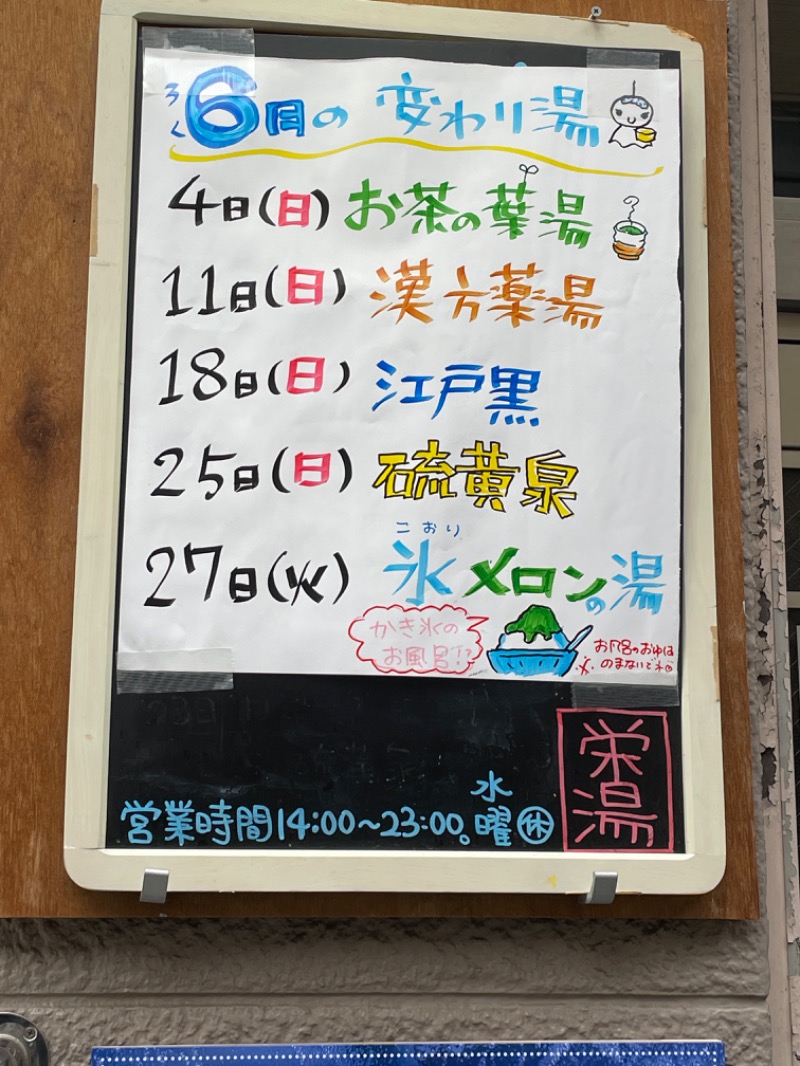 ろく
6月の 変わり湯
4日(日) お茶の葉湯
11日(日) 漢方薬湯
18日(日) 江戸黒
25日(日) 硫黄泉
こおり
27日(火) 氷メロンの湯
かき氷の
お風呂!?
お風呂のおゆは
のまないでネ
栄湯
営業時間14:00~23:00。水曜㊡